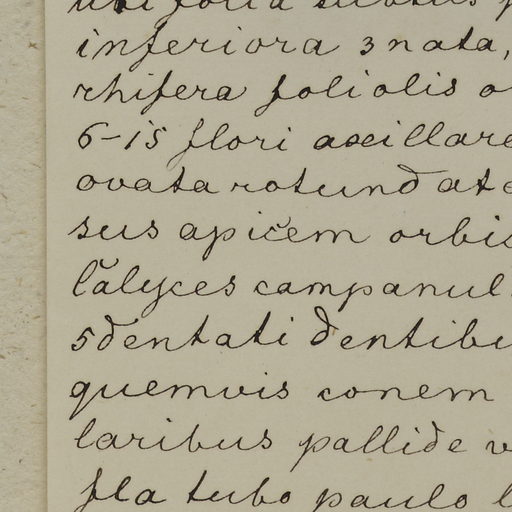 folia subtus
inferiora 3nata,
rhifera foliolis
6-15 flori axillare
ovata rotundat
sus apicem orbi
Calyces campanul
5dentati dentibu
quemvis conem
laribus pallide
fla tubo paulo